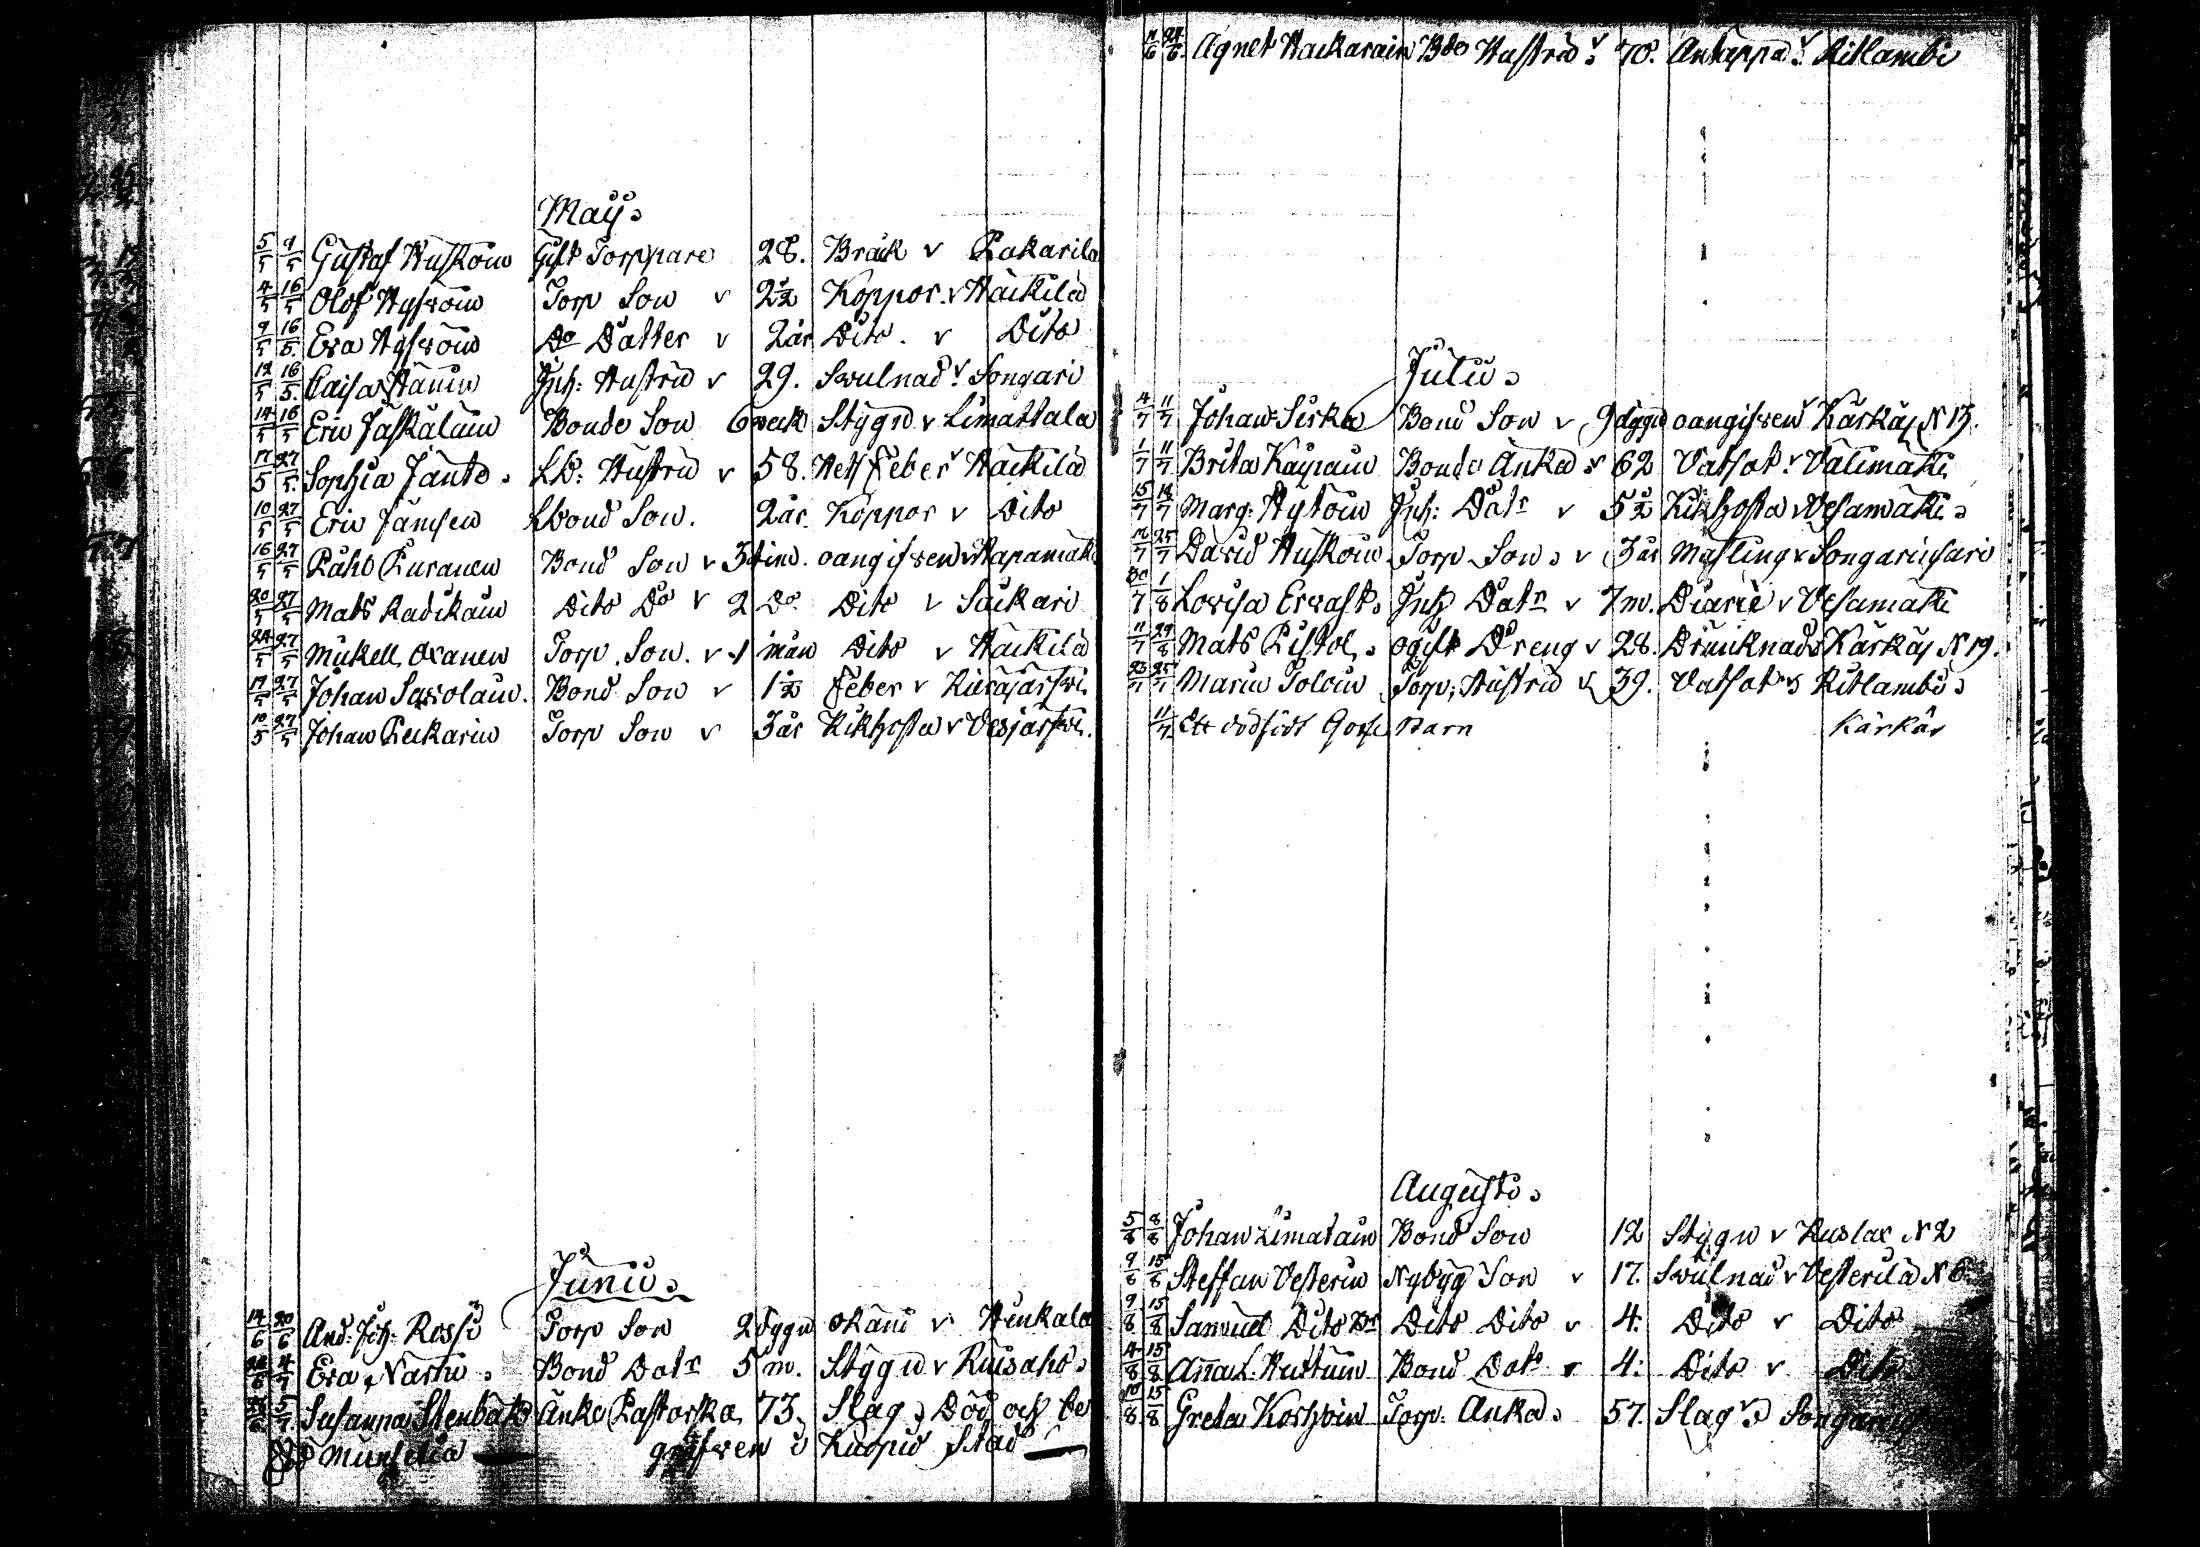 May.
5/5 9/5 Gustaf Huskoin Gift Torppare 28. Bråk v Pakarila
4/5 16/5 Olof Hyfvöin Torp Son v 2½ Koppor. v Häikilä
9/5 16/5. Eva Hyfvöin Do Datter v 2år Dito. v Dito
12/5 16/5. Caisa Hänin Inh: Hustru v 29. Svulnad v Songari
14/5 16/5 Eric Jäskäläin Bonde Son 6 veck Stygn v Limattala
17/5 27/5. Sophia Jänto. LB: Hustru v 58. Hett Feber v Häikilä
10/5 27/5 Eric Jämsen Lbond Son. 2år. Koppor v Dito
16/5 27/5 Påhl Puranen Bond Son v 3 tim. oangifven v Hapamäki
20/5 27/5 Mats Radikain Dito Do v 2 Do Dito v Säikari
24/5 27/5 Mickell Oxanen Torp. Son. v 1 mån Dito v Häikilä
17/5 27/5 Johan Savolain. Bond Son v 1½ Feber v Kierajärfvi
10/5 27/5 Johan Peckarin Torp Son v 3år Kikhosta v Vesjärfvi.
Junii.
14/6 20/6 And: Joh: Rossi Torp Son 2 dygn okänd v Hinkala
4/7 Eva Närhi. Bond Dotr 5 m. Stygn v Ruisaho.
5/7 Susanna Stenbäck Änke Pastorska 73. Slag. Död och be
Munselia grafven i Kuopio Stad
11/6 24/6. Agnet Hackarain Bdo Hustru v 70. Anteppa v Ritlambi
Julii.
4/7 11/7 Johan Sirka Bond Son v 9 dygn oangifven v Kärkäj N 13.
1/7 11/7 Brita Kainain Bonde Änka v 62 Vatsot v Välimäki
15/7 18/7 Marg: Hytöin Inh: Dotr v 5½ Kikhosta v Vesamäki.
18/7 25/7 David Huskoin Torp Son. v 3år Massling v Songarinsari
30/7 1/8 Lovisa Ervast. Inh Dotr v 7 m. Diarié v Vesamäki
11/7 29/8 Mats Pistol. ogift Dreng v 28. Drunknad v Kärkäj N 19.
23/7 25/7 Maria Toloin Torp: Hustru v 39. Vatsot v Ritlambi.
11/7. Ett dödfödt Gosse Barn Kärkäs
Augusti.
5/8 8/8 Johan Limatain Bond Son 12 Stygn v Kuslax N 2
9/8 15/8 Steffan Vesterin Nybygg Son v 17. Svulnad v Vesterilä N 6
9/8 15/8 Samuel Dito Dito Dito v 4. Dito v Dito
4/8 15/8 Anna L. Huttuin Bond Dotr v 4: Dito v Dito
10/8 15/8 Greta Korhoin Torp: Änka. 57. Slag v